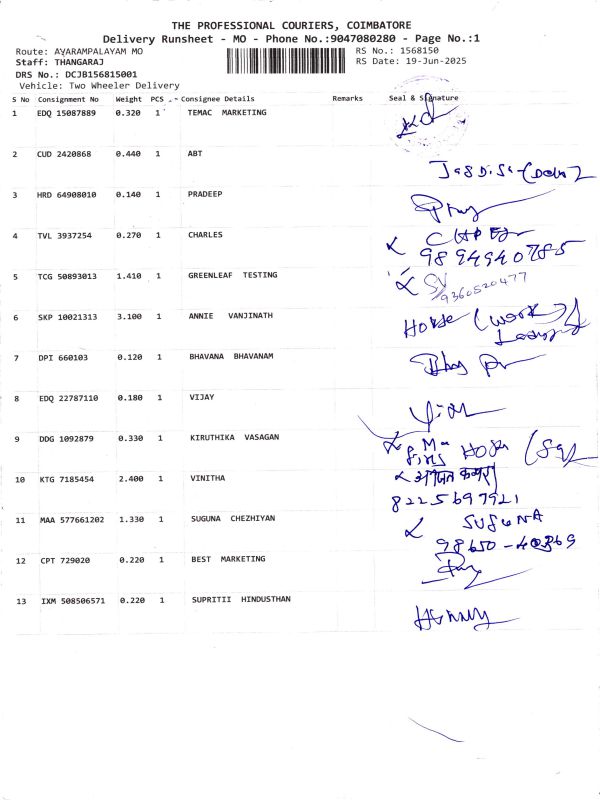 THE PROFESSIONAL COURIERS, COIMBATORE
Delivery Runsheet - MO - Phone No.:9047080280 - Page No.:1
Route: AVARAMPALAYAM MO RS No.: 1568150
Staff: THANGARAJ RS Date: 19-Jun-2025
DRS No.: DCJB156815001
Vehicle: Two Wheeler Delivery
S No Consignment No Weight PCS Consignee Details Remarks Seal & Signature
1 EDQ 15087889 0.320 1 TEMAC MARKETING
2 CUD 2420868 0.440 1 ABT
3 HRD 64908010 0.140 1 PRADEEP
4 TVL 3937254 0.270 1 CHARLES
9894940785
5 TCG 50893013 1.410 1 GREENLEAF TESTING
9360520477
6 SKP 10021313 3.100 1 ANNIE VANJINATH
House (work
7 DPI 660103 0.120 1 BHAVANA BHAVANAM
8 EDQ 22787110 0.180 1 VIJAY
9 DDG 1092879 0.330 1 KIRUTHIKA VASAGAN
10 KTG 7185454 2.400 1 VINITHA
8225697921
11 MAA 577661202 1.330 1 SUGUNA CHEZHIYAN
SUGUNA
12 CPT 729020 0.220 1 BEST MARKETING
13 IXM 508506571 0.220 1 SUPRITII HINDUSTHAN